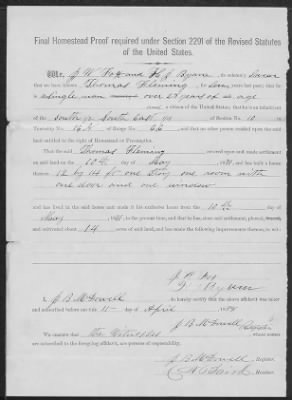 Final Homestead Proof required under Section 2291 of the Revised Statutes
of the United States.
We, J. W. Fox and H. J. Byrne do solemnly swear
that we have known Thomas Fleming for five years last past; that he
is a single man over 21 years of age
a citizen of the United States, that he is an inhabitant
of the South ½ South East ¼ of Section No. 10 in
Township No. 16 N of Range No. 6 E and that no other person resided upon the said
land entitled to the right of Homestead or Pre-emption.
That the said Thomas Fleming entered upon and made settlement
on said land on the 10th day of May, 188 and has built a house
thereon 12 by 14 ft one story one room with
one door and one window
and has lived in the said house and made it his exclusive home from the 10th day of
May 188, to the present time, and that he has, since said settlement, plowed,
and cultivated about 14 acres of said land, and has made the following improvements thereon, to wit:
J. W. Fox
H. J. Byrne
I, J B McDowell do hereby certify that the above affidavit was taken
and subscribed before me this 11 day of April 188
J B McDowell Register
We certify that the witnesses whose names
are subscribed to the foregoing affidavit, are persons of respectability.
J B McDowell, Register.
, Receiver.